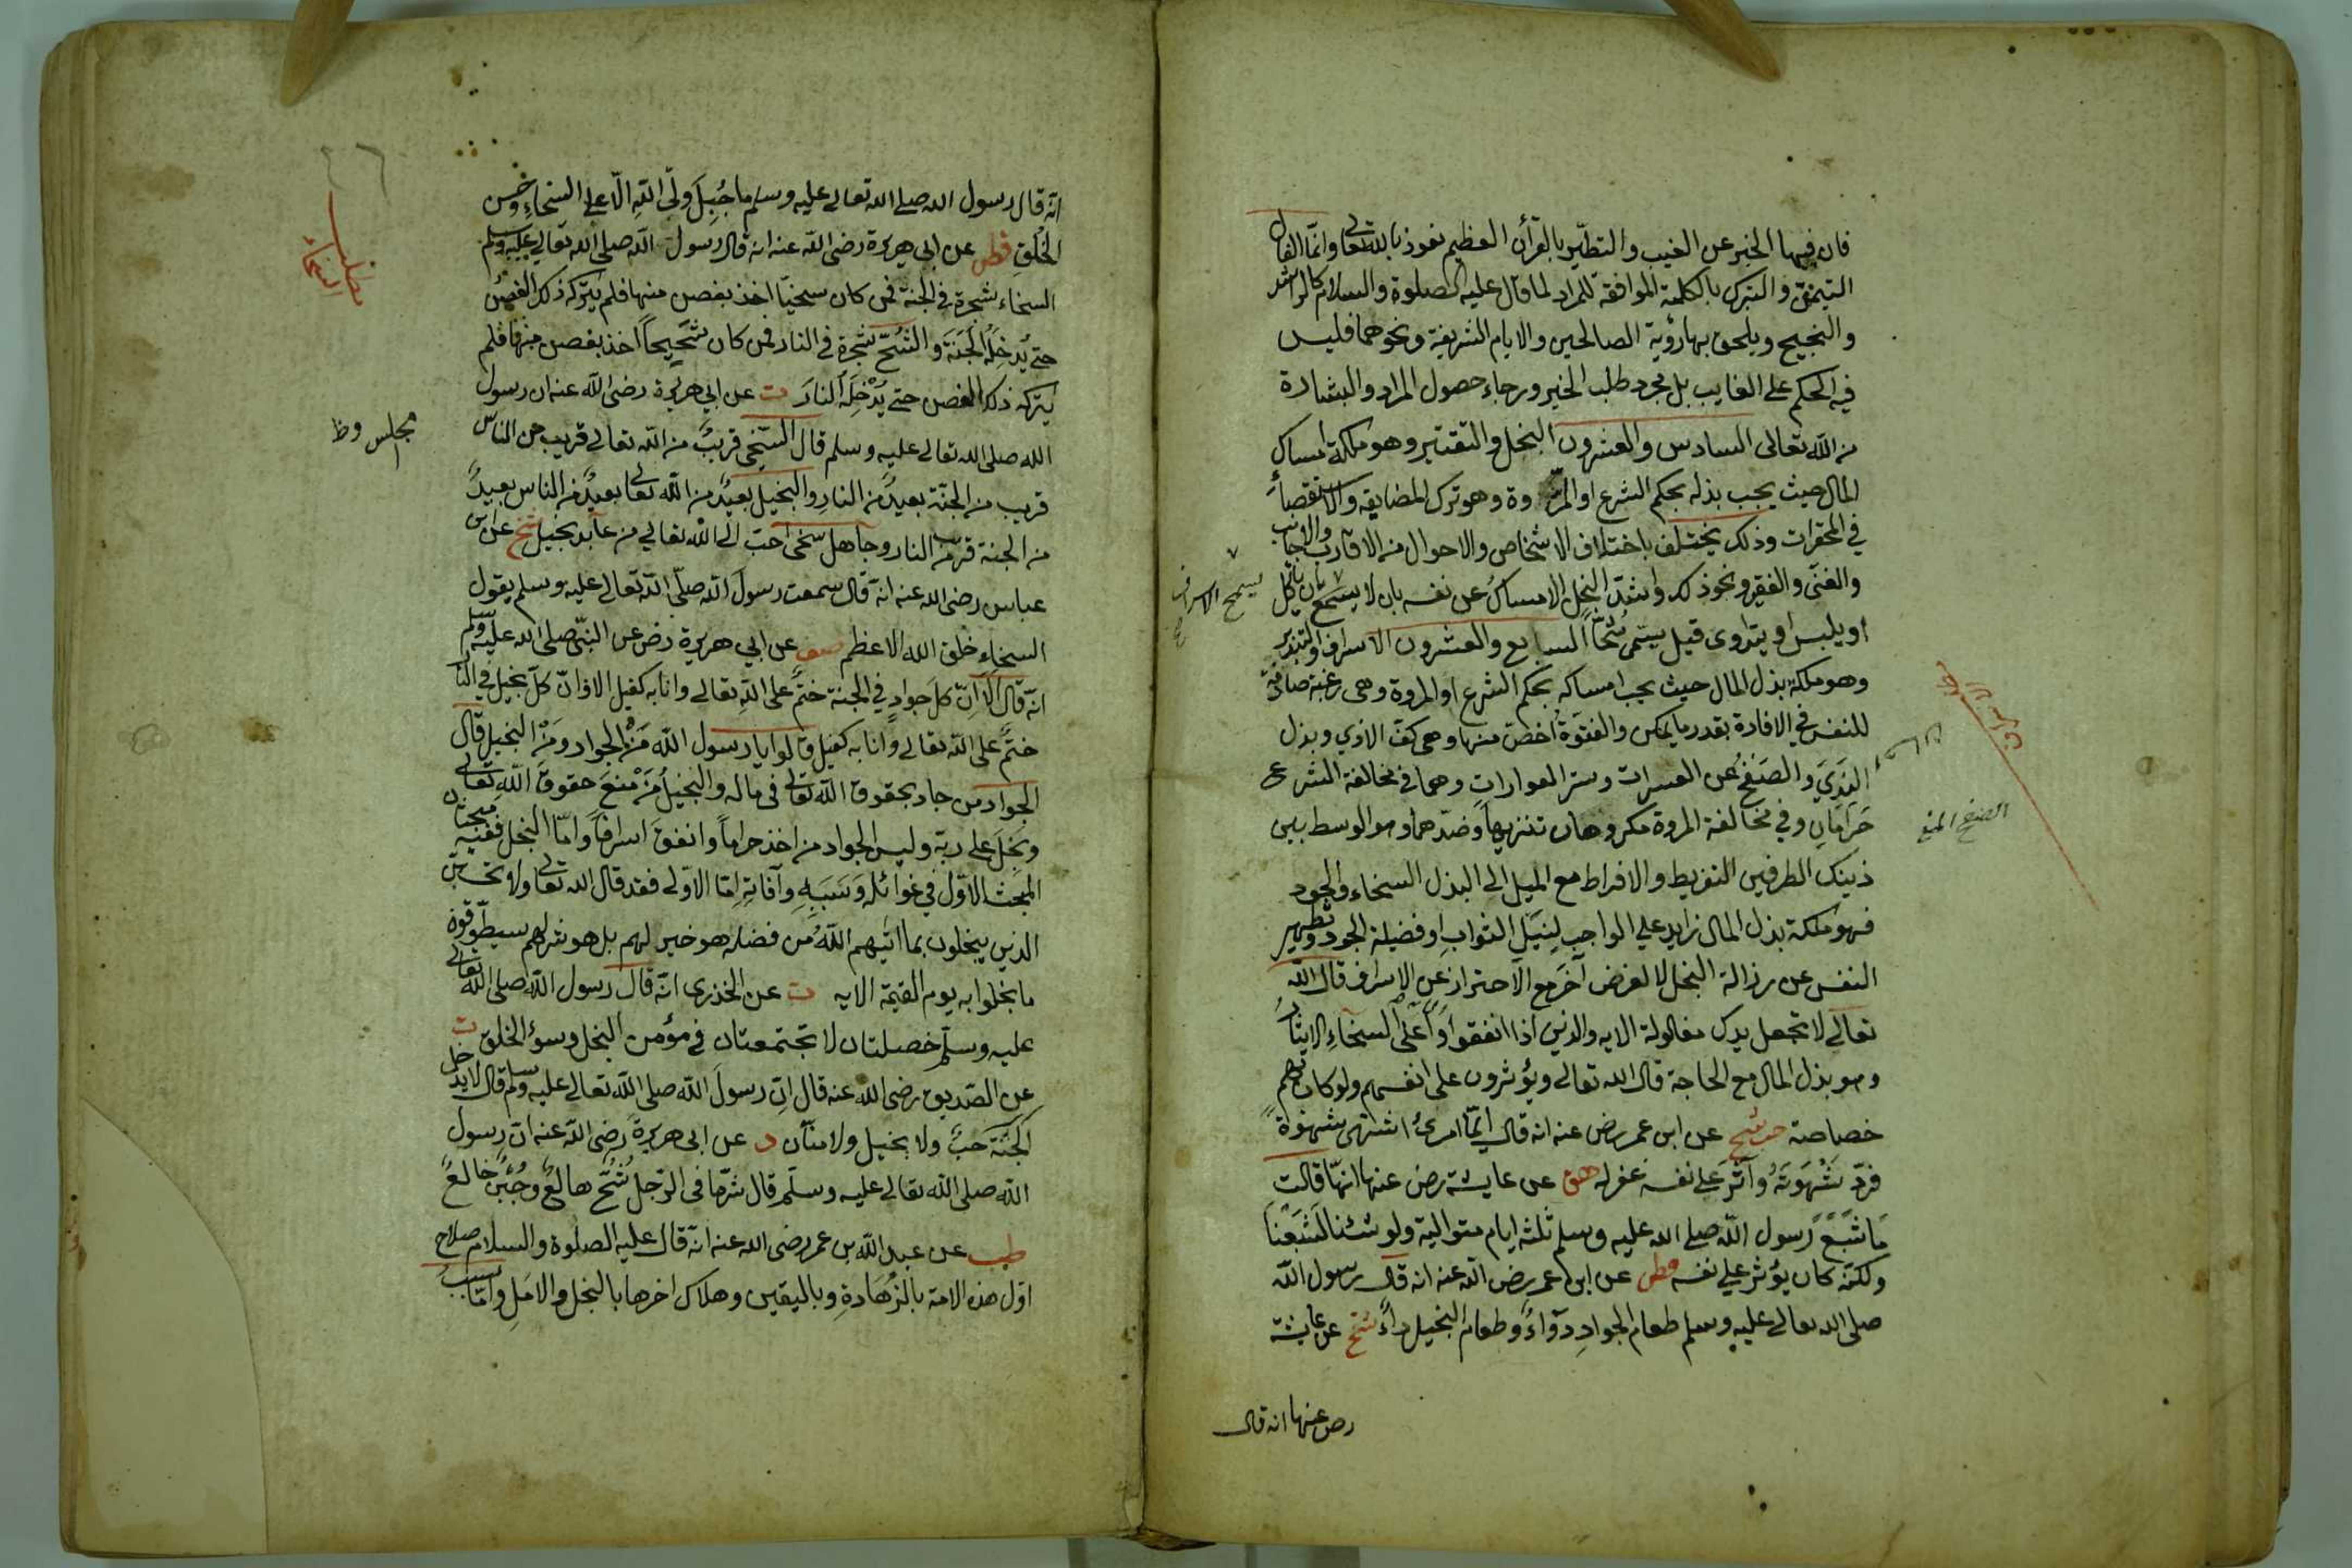 فان فيها الخبر عن الغيب والتطير بالقرأن العظيم نعوذ بالله تعالى وانما الفال
التيمن والتبرك بالكلمة الموافقة للمراد لما قال عليه الصلوة والسلام كالراشد
والنجيح ويلحق بها رؤية الصالحين والايام الشريفة ونحوهما فليس
فيه الحكم على الغايب بل مجرد طلب الخير ورجاء حصول المراد والبشارة
من الله تعالى السادس والعشرون البخل والتقتير وهو ملكة امساك
المال حيث يجب بذله بحكم الشرع او المروة وهو ترك المضايقة والاستقصاء
في المحقرات وذلك يختلف باختلاف الاشخاص والاحوال من الاقارب والاجانب
والغنى والفقير ونحو ذلك واشد البخل الامساك عن نفسه بان لا يسمح بان ياكل
او يلبس او يتداوى قيل يسمى شحا السابع والعشرون الاسراف والتبذير
وهو ملكة بذل المال حيث يجب امساكه بحكم الشرع او المروة وهى رغبة صادقة
للنفس في الافادة بقدر ما يمكن والفتوة اخص منها وهى كف الاذي وبذل
الندي والصفح عن العسرات وستر العوارات وهما في مخالفة الشرع
حرامان وفي مخالفة المروة مكروهان تنزيها وضدهما وهو الوسط بين
ذينك الطرفين التفريط والافراط مع الميل الى البذل السخاء والجود
فهو ملكة بذل المال زايد علي الواجب لنيل الثواب او فضيلة الجود وتطهير
النفس عن رزالة البخل لا لغرض آخر مع الاحتراز عن الاسراف قال الله
تعالى لا تجعل يدك مغلولة الايه والذين اذا انفقوا واعلى السخاء الايثار
وهو بذل المال مع الحاجة قال الله تعالى ويؤثرون على انفسهم ولو كان بهم
خصاصة حب شيخ عن ابن عمر رض عنه انه قال ايما امرئ اشتهى شهوة
فرد شهوته وآثر على نفسه غفر له هق عن عايشة رض عنها انها قالت
ما شبع رسول الله صلى الله عليه وسلم ثلثة ايام متوالية ولو شئنا لشبعنا
ولكنه كان يؤثر علي نفسه قطن عن ابن عمر رض الله عنه انه قال رسول الله
صلى الله تعالى عليه وسلم طعام الجواد دواء وطعام البخيل داء شيخ عن عايشة
رض عنها انه قال
الصفح المنع
انه قال رسول الله صلى الله تعالى عليه وسلم ما جبل ولي الله الا على السخاء وحسن
الخلق قطن عن ابي هريرة رضى الله عنه انه قال رسول الله صلى الله تعالى عليه وسلم
السخاء شجرة في الجنة فمن كان سخيا اخذ بغصن منها فلم يتركه ذلك الغصن
حتى يدخله الجنة والشح شجرة في النار فمن كان شحيحا اخذ بغصن منها فلم
يتركه ذلك الغصن حتى يدخله النار ت عن ابي هريرة رضى الله عنه ان رسول
الله صلى الله تعالى عليه وسلم قال السخي قريب من الله تعالى قريب من الناس
قريب من الجنة بعيد من النار والبخيل بعيد من الله تعالى بعيد من الناس بعيد
من الجنة قريب من النار وجاهل سخى احب الى الله تعالي من عابد بخيل شيخ عن ابن
عباس رضى الله عنه انه قال سمعت رسول الله صلى الله تعالى عليه وسلم يقول
السخاء خلق الله الاعظم صف عن ابي هريرة رض عن النبي صلى الله عليه وسلم
انه قال الا ان كل جواد في الجنة ختم على الله تعالى وانا به كفيل الا وان كل بخيل في النار
ختم على الله تعالى وانا به كفيل قالوا يا رسول الله من الجواد ومن البخيل قال
الجواد من جاد بحقوق الله تعالى في ماله والبخيل من منع حقوق الله تعالى
وبخل على ربه وليس الجواد من اخذ حراما وانفق اسرافا واما البخل ففيه مبحثان
المبحث الاول في غوائله وسببه وآفاته اما الاولى فقد قال الله تعالى ولا تحسبن
الذين يبخلون بما آتيهم الله من فضله هو خير لهم بل هو شر لهم سيطوقون
ما بخلوا به يوم القيمة الايه ت عن الخذرى انه قال رسول الله صلى الله تعالى
عليه وسلم خصلتان لا تجتمعتان في مؤمن البخل وسوء الخلق ت
عن الصديق رضى الله عنه قال ان رسول الله صلى الله تعالى عليه وسلم قال لا يدخل
الجنة خب ولا بخيل ولا منان د عن ابى هريرة رضى الله عنه ان رسول
الله صلى الله تعالى عليه وسلم قال شر ما في الرجل شح هالع وجبن خالع
طب عن عبد الله بن عمر رضى الله عنه انه قال عليه الصلوة والسلام صلاح
اول هذه الامة بالزهادة وباليقين وهلاك اخرها بالبخل والامل واما سبب
مجلس وظ